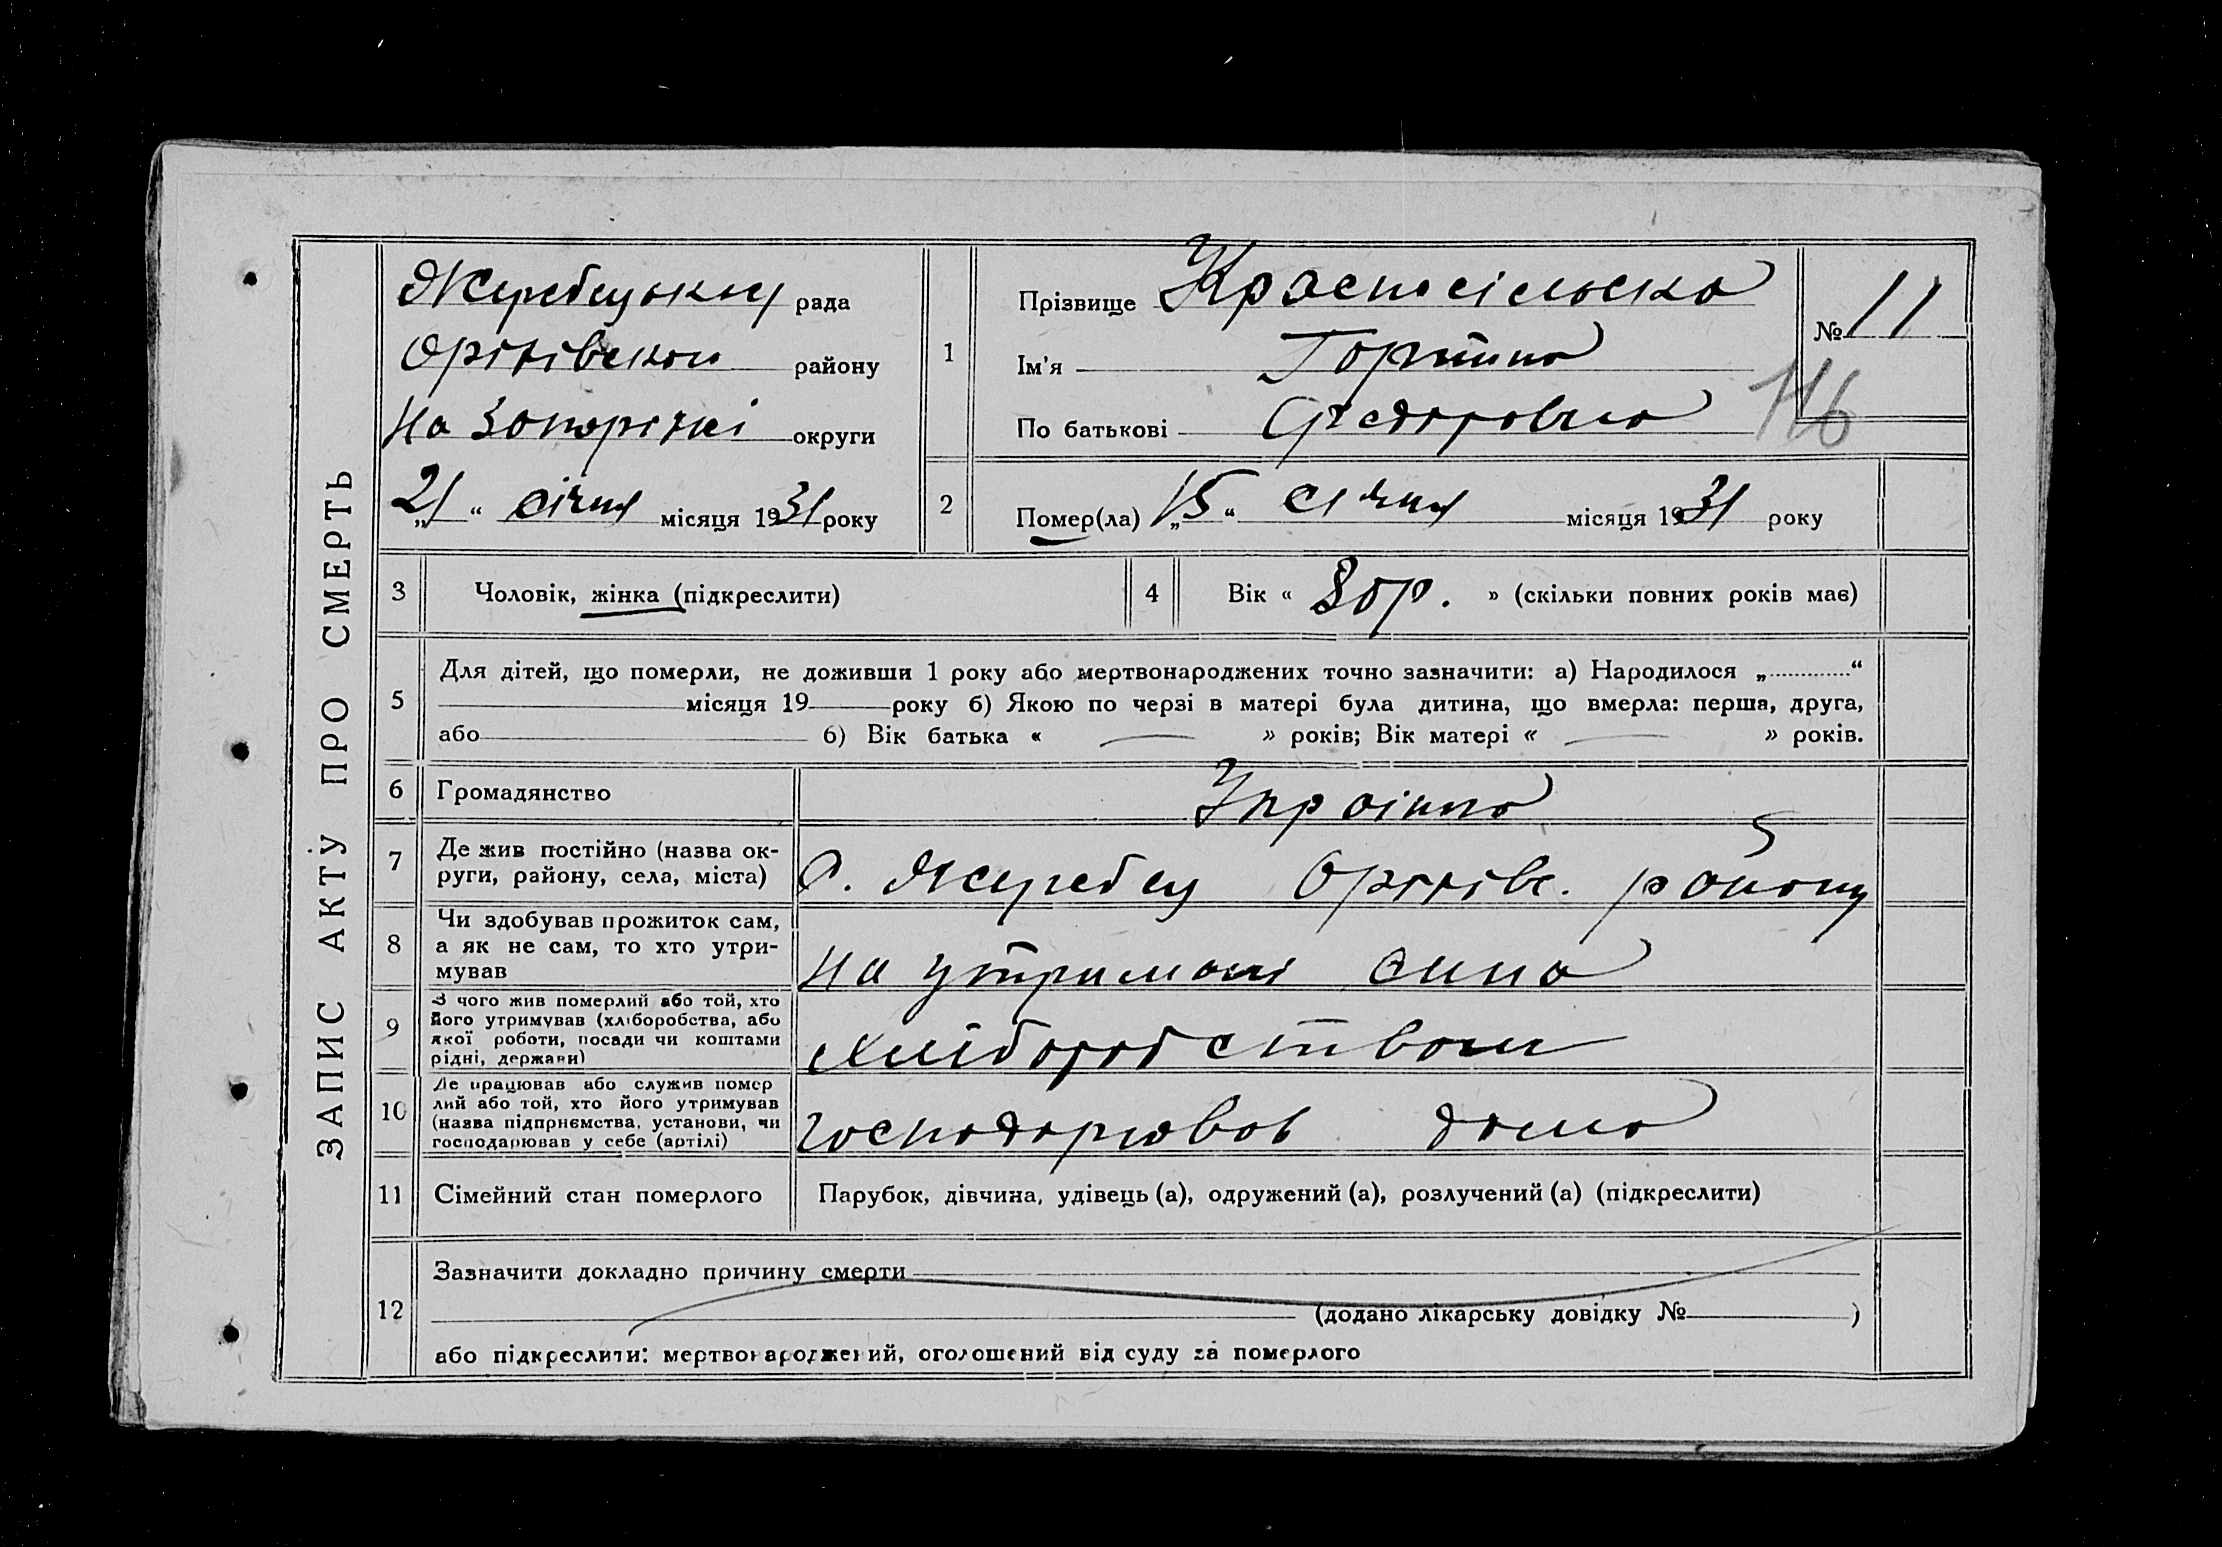 ЗАПИС АКТУ ПРО СМЕРТЬ
Жеребецької рада
Оріхівськ району
На Запоріжжі округи
„21“ січня місяця 1931 року
1
Прізвище Красносільська
Ім'я
По батькові Федоровна
№ 11
116
2
Помер(ла) „15“ січня місяця 1931 року
3 Чоловік, жінка (підкреслити)
4 Вік « 80 р. » (скільки повних років має)
5
Для дітей, що померли, не доживши 1 року або мертвонароджених точно зазначити: а) Народилося „ “
місяця 19 року б) Якою по черзі в матері була дитина, що вмерла: перша, друга,
або б) Вік батька « — » років; Вік матері « — » років.
6 Громадянство
7 Де жив постійно (назва ок-
руги, району, села, міста)
С. Жеребец Оріхівс. району
8 Чи здобував прожиток сам,
а як не сам, то хто утри-
мував
на утримані сина
9 З чого жив померлий або той, хто
його утримував (хліборобства, або
якої роботи, посади чи коштами
рідні, держави)
хліборобством
10 Де працював або служив помер
лий або той, хто його утримував
(назва підприємства, установи, чи
господарював у себе (артілі)
господарював дома
11 Сімейний стан померлого Парубок, дівчина, удівець (а), одружений (а), розлучений (а) (підкреслити)
12
Зазначити докладно причину смерти
(додано лікарську довідку № )
або підкреслити: мертвонароджений, оголошений від суду за померлого